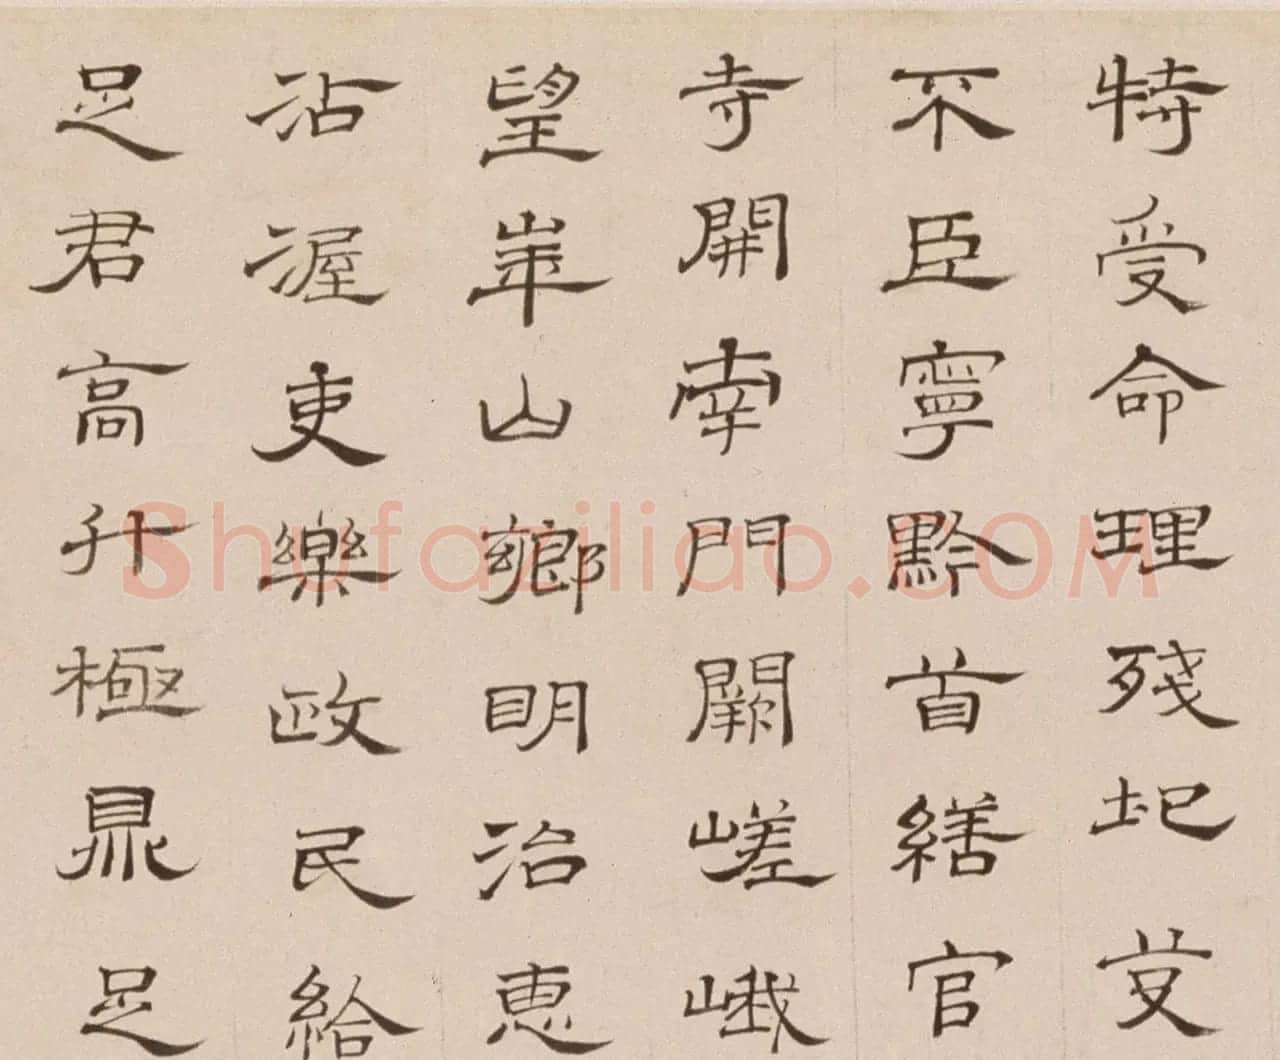 特受命理殘圯芟
不臣寧黔首繕官
寺開南門闕嵯峨
望崋山鄉明治惠
沾渥吏樂政民給
足君高升極鼎足
Shufaziliao.COM